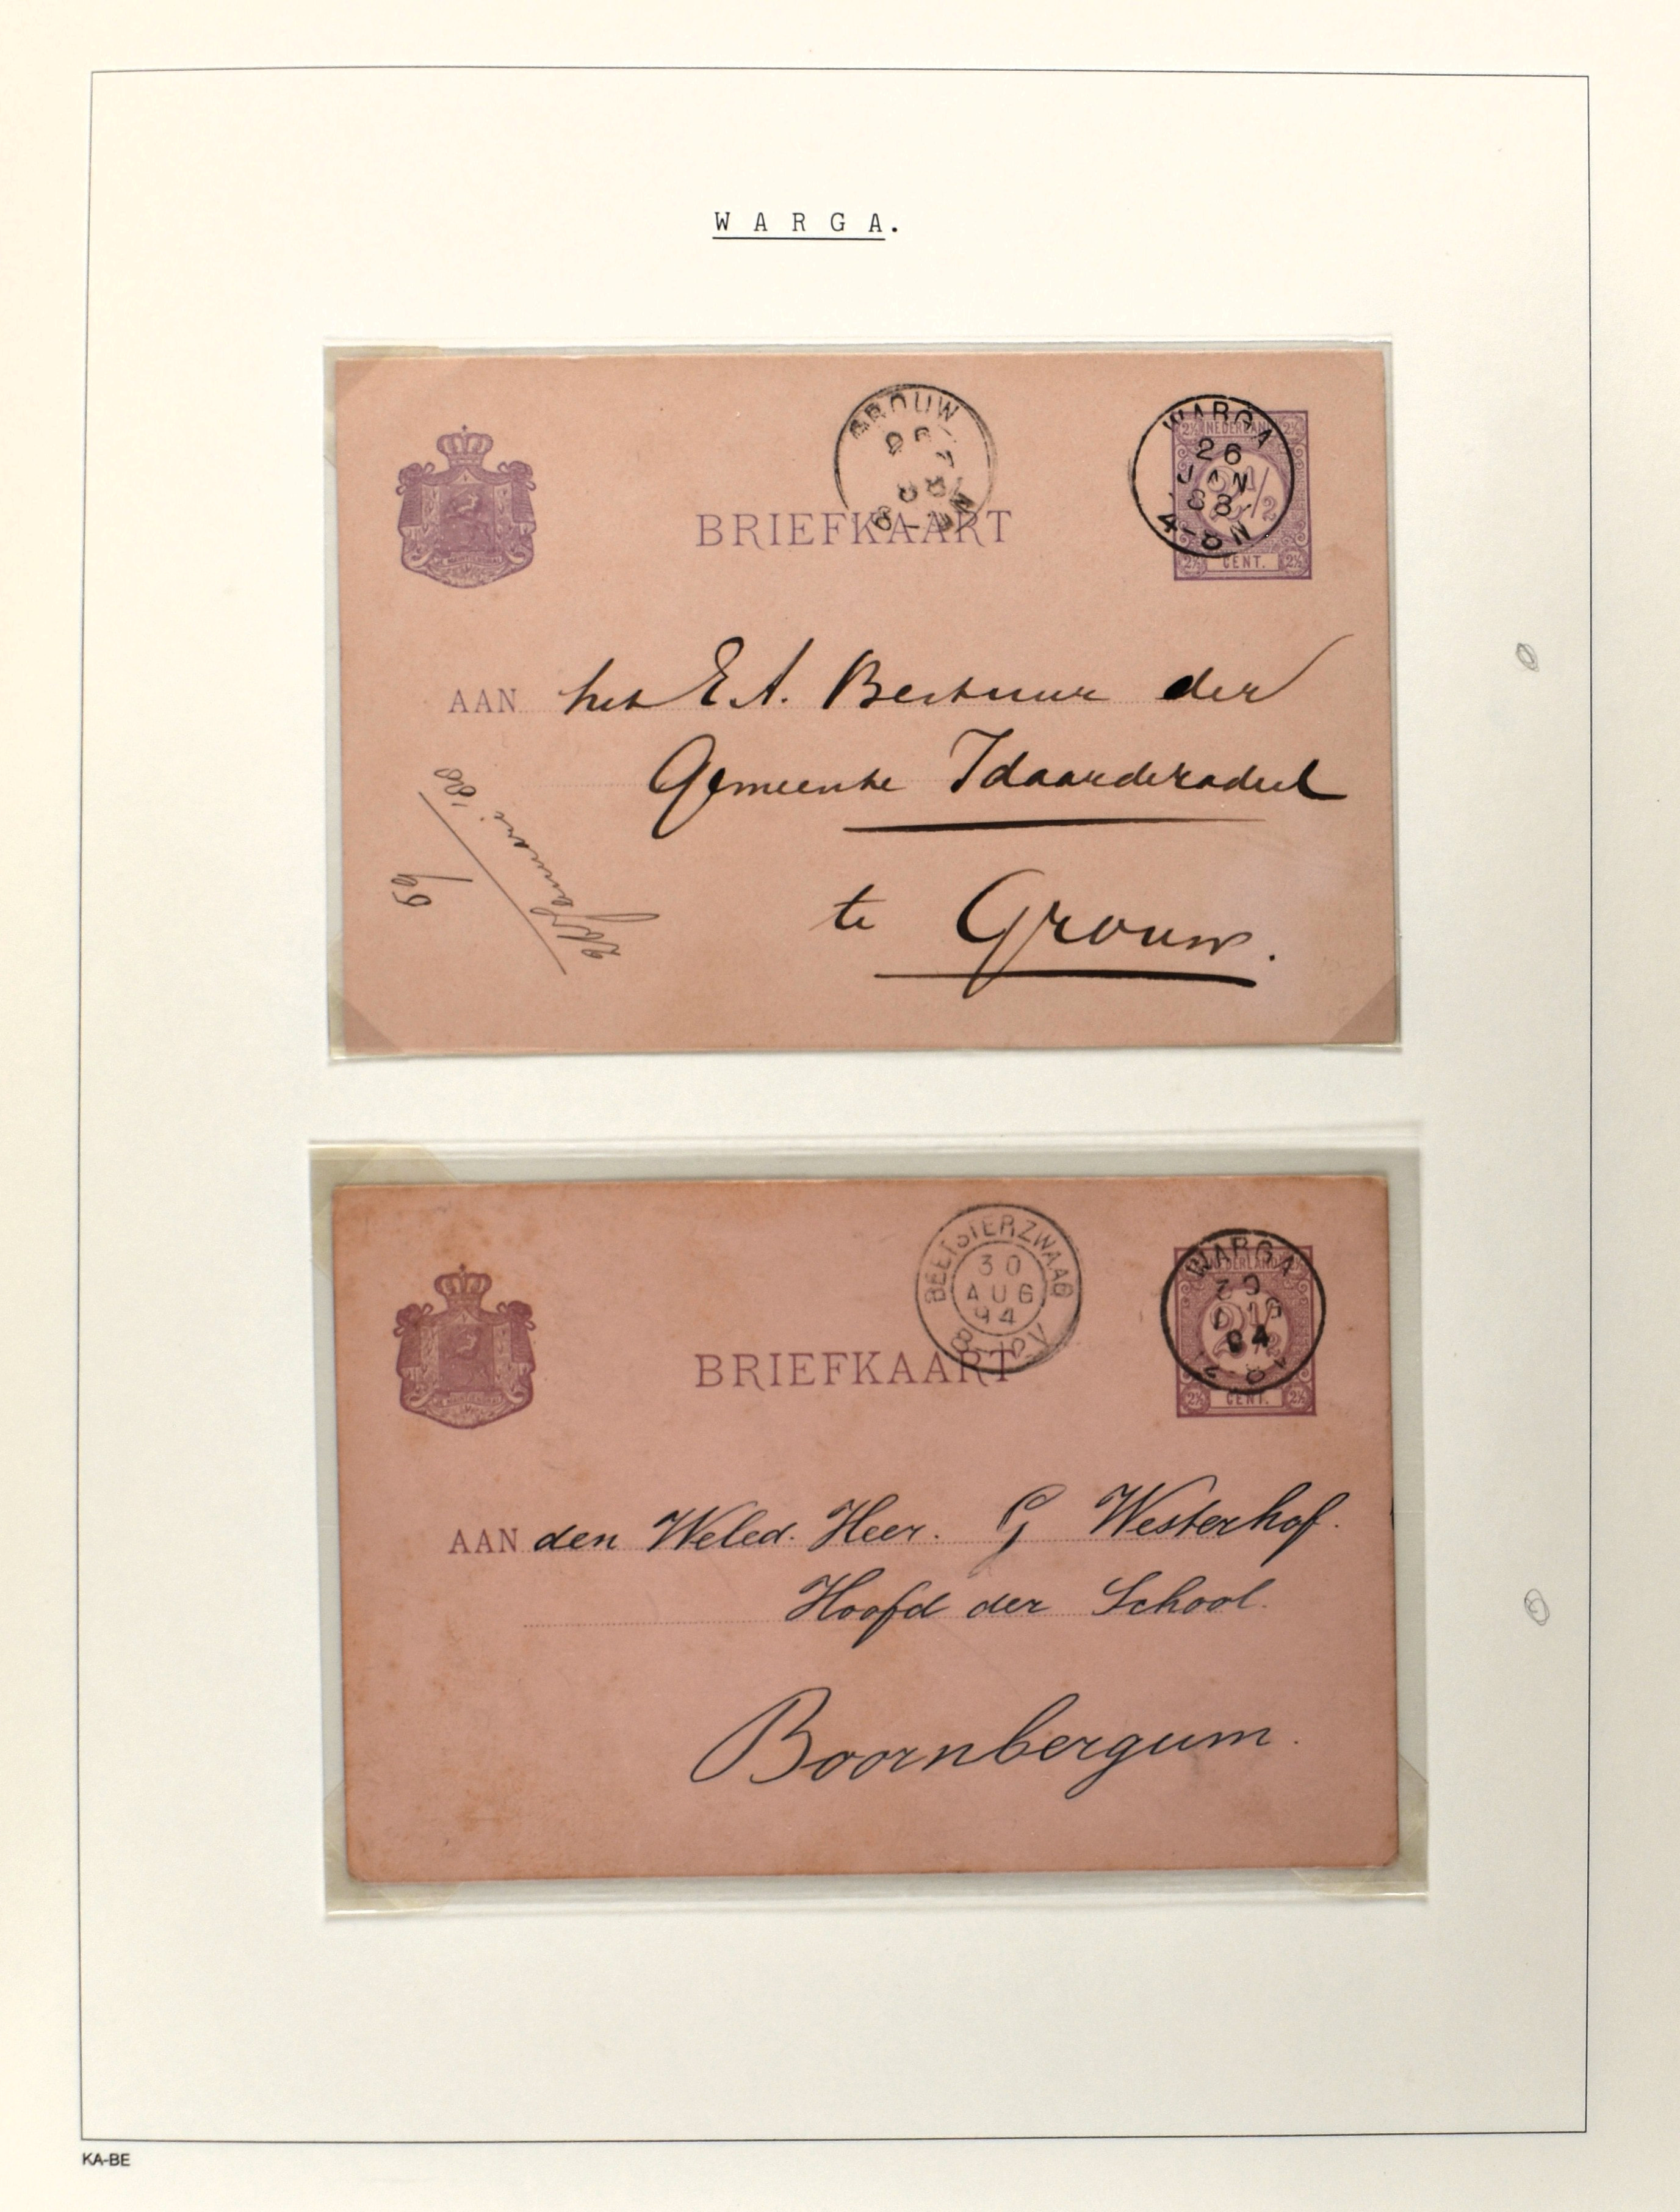 W A R G A.
GROUW
WARGA
26
JAN
88
4-8N
2½ NEDERLAND 2½
2½ CENT. 2½
BRIEFKAART
AAN het E A. Bestuur der
Gemeente Idaarderadeel
te Grouw.
Januari '88
59
BEETSTERZWAAG
30
AUG
94
8-10V
WARGA
30
94
NEDERLAND
2½
2½ CENT. 2½
BRIEFKAART
AAN den Weled. Heer. G Westerhof.
Hoofd der School.
Boornbergum.
KA-BE